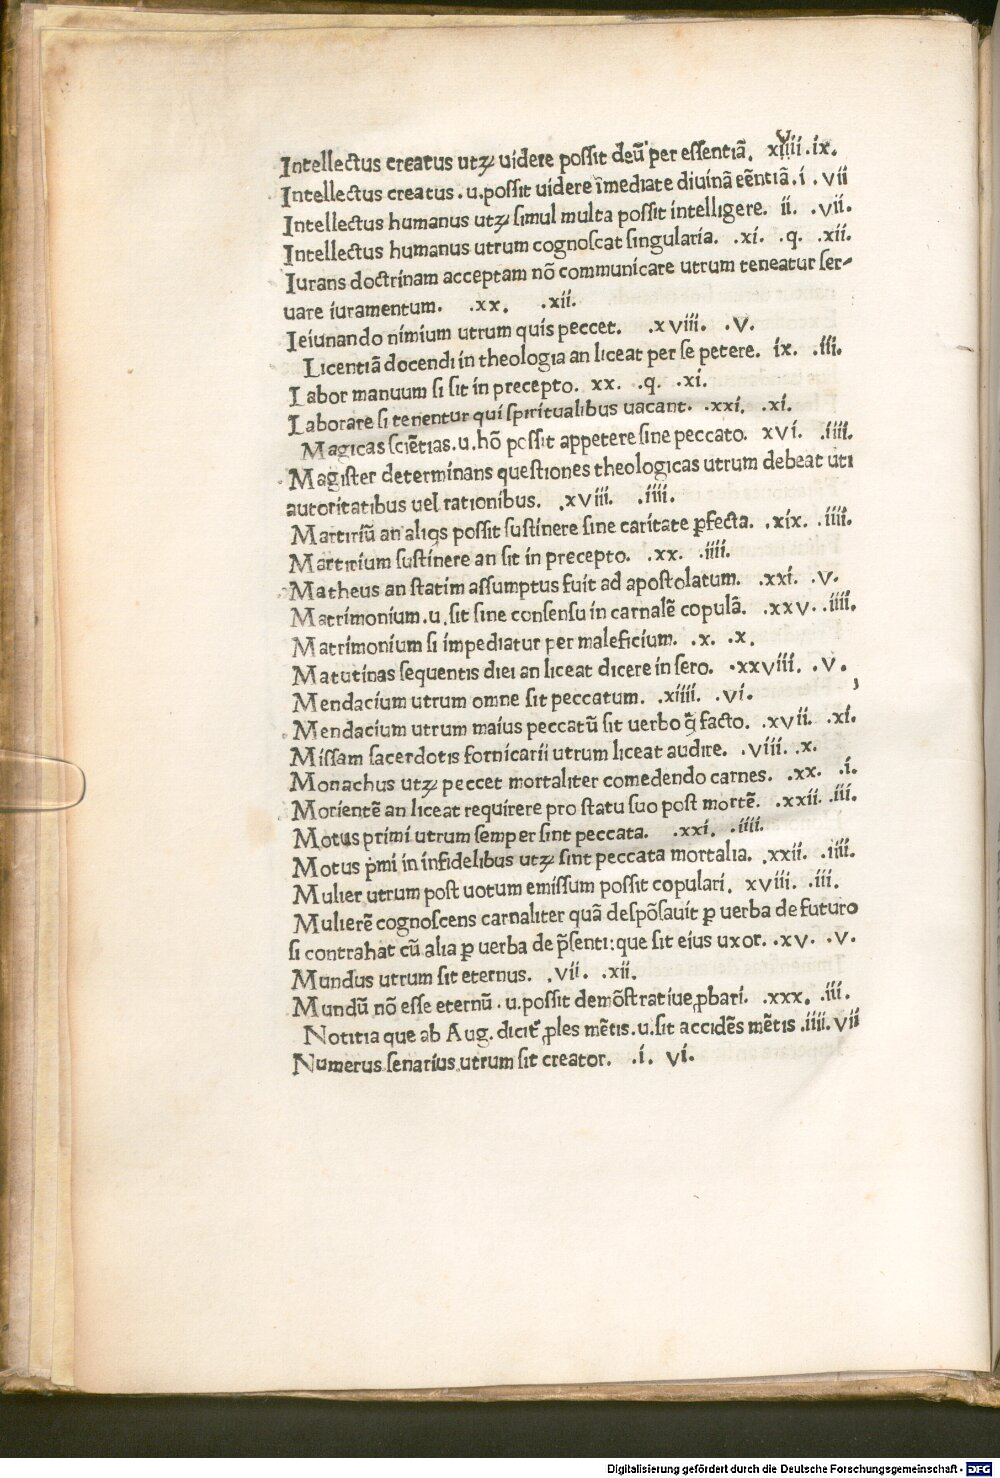 Intellectus creatus utꝫ uidere possit deũ per essentiã. xiiii.ix.
Intellectus creatus .u. possit uidere ĩmediate diuinã eẽntiã .i . vii
Intellectus humanus utꝫ simul multa possit intelligere. ii. .vii.
Intellectus humanus utrum cognoscat singularia. .xi. .q. .xii.
Iurans doctrinam acceptam nõ communicare utrum teneatur ser-
uare iuramentum. .xx. .xii.
Ieiunando nimium utrum quis peccet. .xviii. .v.
Licentiã docendi in theologia an liceat per se petere. ix. .iii.
Labor manuum si sit in precepto. xx. .q. .xi.
Laborare si tenentur qui spiritualibus uacant. .xxi. .xi.
Magicas sciẽtias .u. hõ possit appetere sine peccato. xvi. .iiii.
Magister determinans questiones theologicas utrum debeat uti
autoritatibus uel rationibus. .xviii. .iiii.
Martiriũ an aliqs possit sustinere sine caritate ꝑfecta. .xix. .iiii.
Martirium sustinere an sit in precepto. .xx. .iiii.
Matheus an statim assumptus fuit ad apostolatum. .xxi. .v.
Matrimonium .u. sit sine consensu in carnalẽ copulã. .xxv. .iiii.
Matrimonium si impediatur per maleficium. .x. .x.
Matutinas sequentis diei an liceat dicere in sero. .xxviii. .v.
Mendacium utrum omne sit peccatum. .xiiii. .vi.
Mendacium utrum maius peccatũ sit uerbo q̃ facto. .xvii. .xi.
Missam sacerdotis fornicarii utrum liceat audire. .viii. .x.
Monachus utꝫ peccet mortaliter comedendo carnes. .xx. .i.
Morientẽ an liceat requirere pro statu suo post mortẽ. .xxii. .iii.
Motus primi utrum semper sint peccata. .xxi. .iiii.
Motus p̃mi in infidelibus utꝫ sint peccata mortalia. .xxii. .iiii.
Mulier utrum post uotum emissum possit copulari. xviii. .iii.
Mulierẽ cognoscens carnaliter quã despõsauit ꝑ uerba de futuro
si contrahat cũ alia ꝑ uerba de p̃senti: que sit eius uxor. .xv. .v.
Mundus utrum sit eternus. .vii. .xii.
Mundũ nõ esse eternũ .u. possit demõstratiue ꝓbari. .xxx. .iii.
Notitia que ab Aug. dicit᷑ ꝓles mẽtis .u. sit accidẽs mẽtis .iiii. vii
Numerus senarius utrum sit creator. .i. vi.
Digitalisierung gefördert durch die Deutsche Forschungsgemeinschaft - DFG